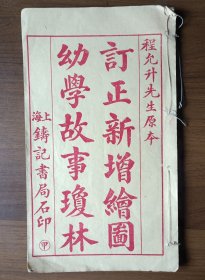 程允升先生原本
訂正新增繪圖
幼學故事瓊林
上海
鑄記書局石印
甲